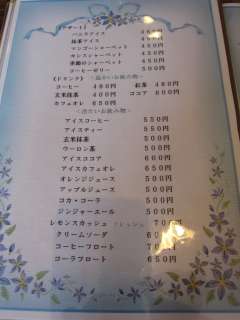 バニラアイス
抹茶アイス 450円
マンゴーシャーベット 450円
キャンスシャーベット 450円
季節のシャーベット 450円
コーヒーゼリー 500円
《ドリンク》 ～温かいお飲み物～
コーヒー 480円 紅茶 480円
玄米抹茶 400円 ココア 600円
カフェオレ 650円
～冷たいお飲み物～
アイスコーヒー 550円
アイスティー 550円
玄米抹茶 500円
ウーロン茶 500円
アイスココア 650円
アイスカフェオレ 650円
オレンジジュース 500円
アップルジュース 500円
コカ・コーラ 500円
ジンジャーエール 500円
レモンスカッシュ フレッシュ 700円
クリームソーダ 600円
コーヒーフロート 750円
コーラフロート 650円